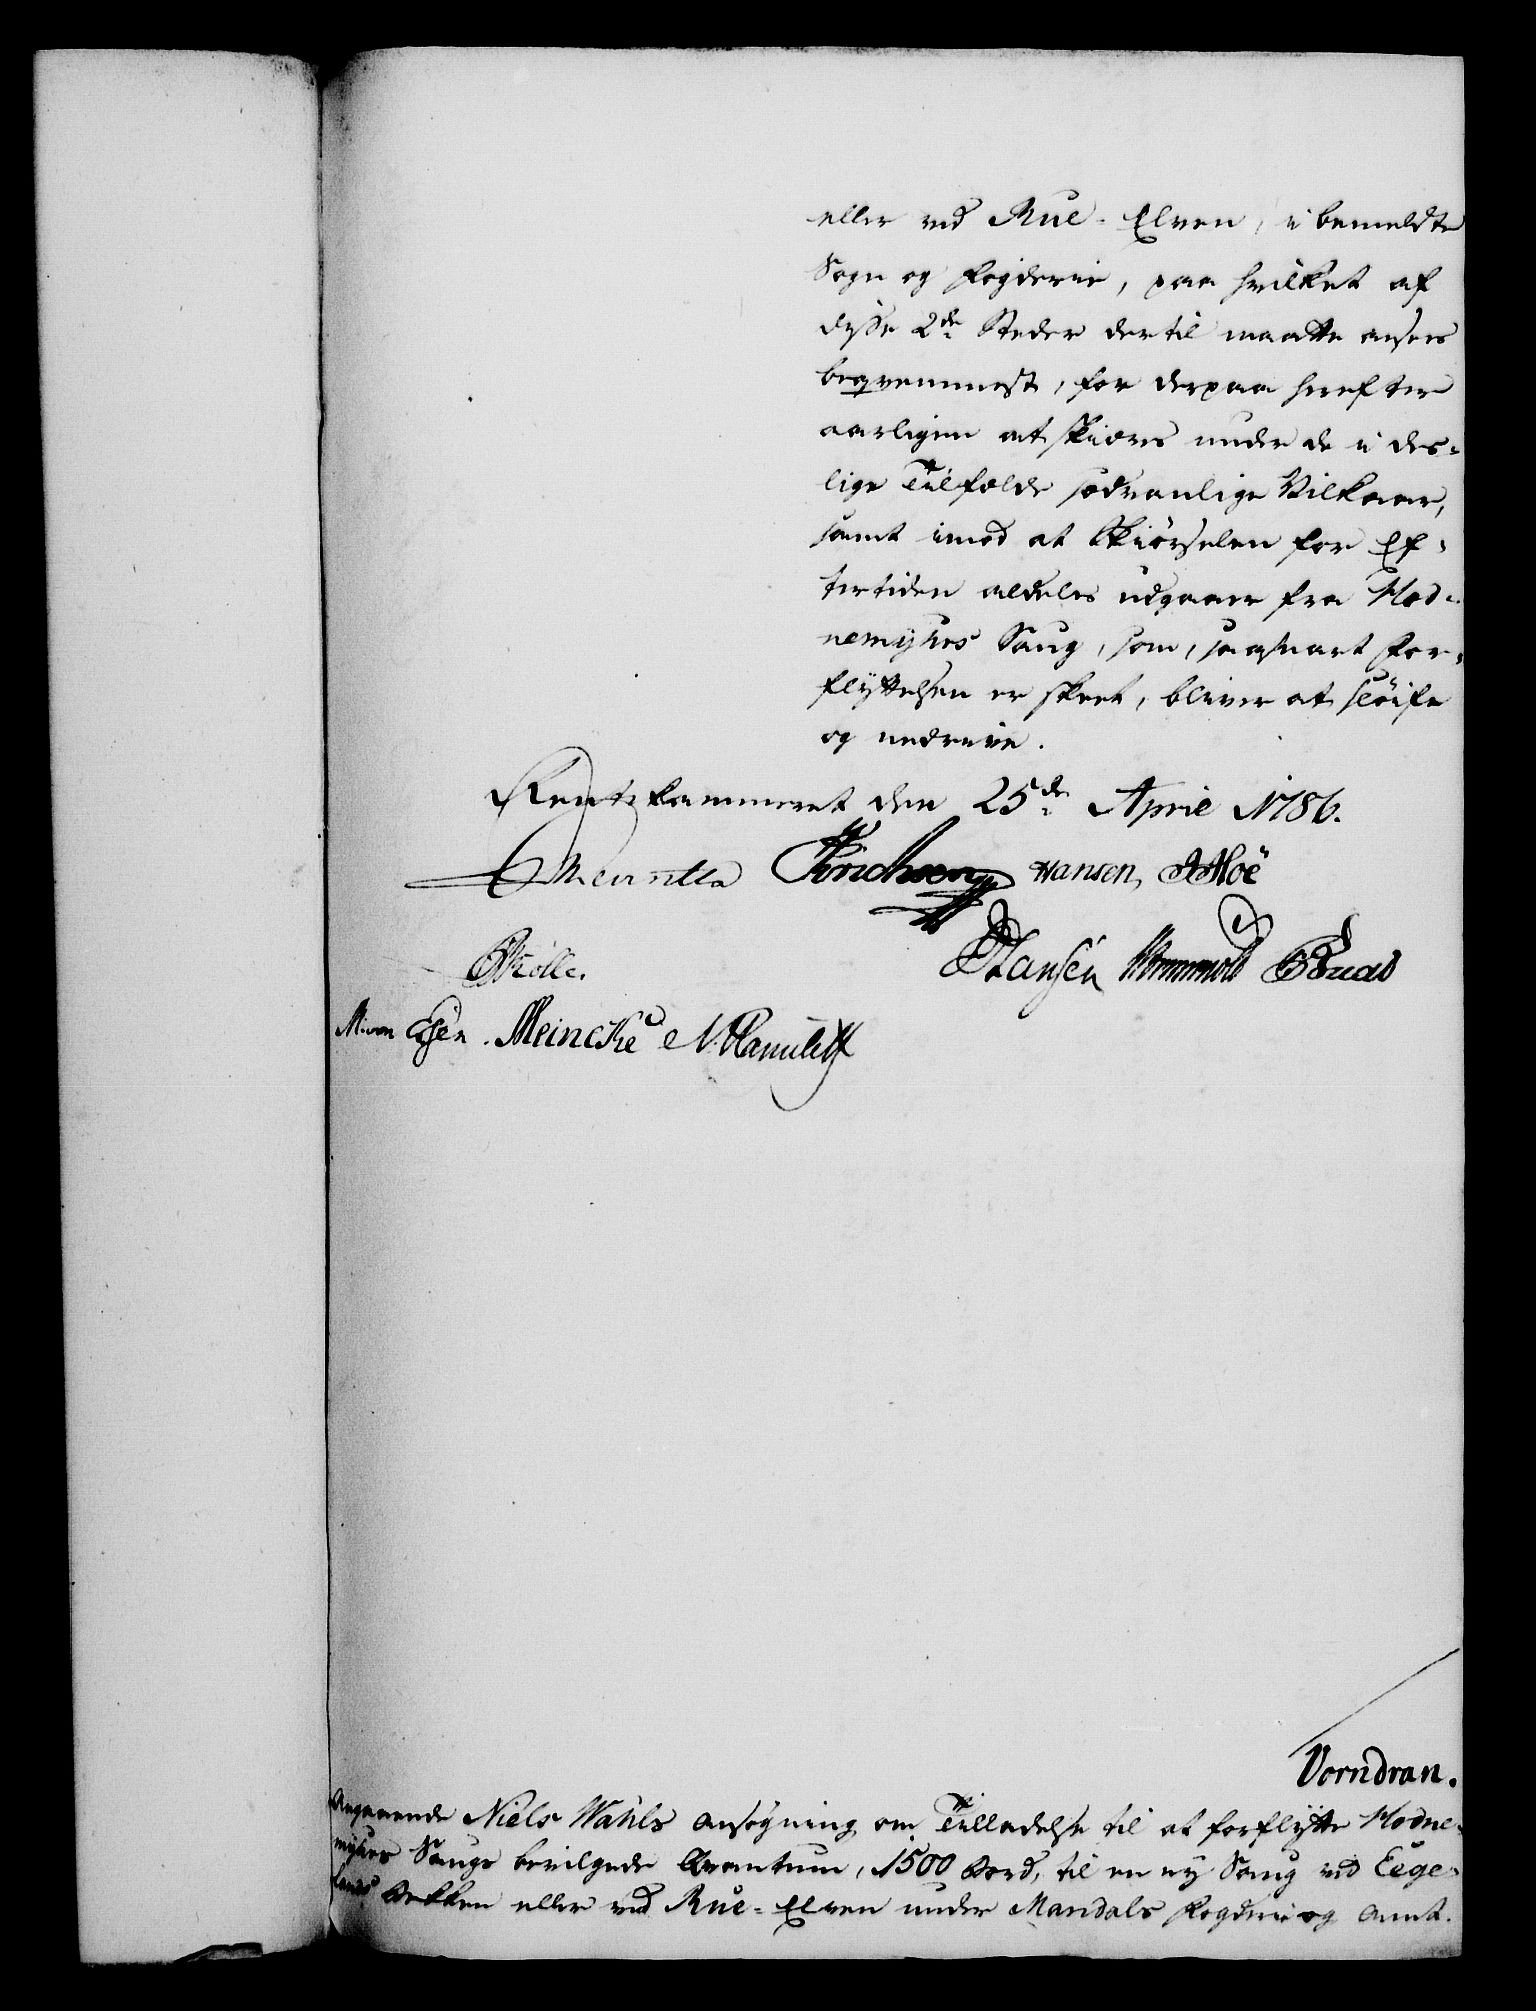 eller ved Rue-Elven, i bemeldte
Sogn og Fogderie, paa hvilket af
disse 2de Steder dertil maatte ansees
beqvemmest, for derpaa herefter
aarligen at skiæres under de i des-
lige Tilfælde sædvanlige Vilkaar,
samt imod at Skiørselen for Ef-
tertiden aldeles udgaaer fra Hod-
nemyhrs Saug, som, saasnart For-
flyttelsen er skeet, bliver at sløife
og nedrive.
Rentekammeret den 25de April 1786.
Erichsen Hansen,
Hansen
Meincke
Vorndran.
Angaaende Niels Wahls Ansøgning om Tilladelse til at forflytte Hodne-
myhrs Saugs bevilgede Qvantum, 1500 Bord, til en ny Saug ved Eege-
lands Bekken eller ved Rue-Elven under Mandals Fogderie og Amt.